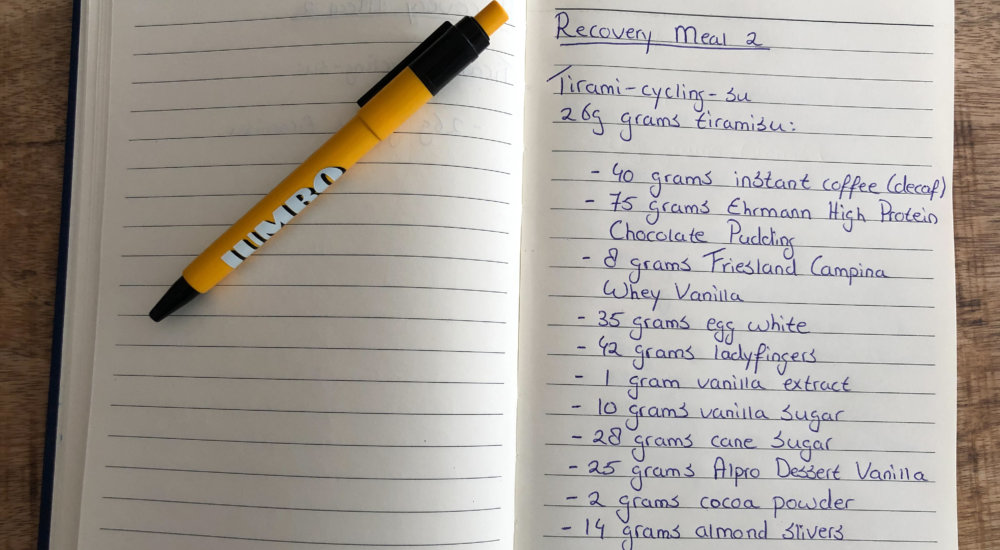 JUMBO
Recovery Meal 2
Tirami-cycling-su
269 grams tiramisu:
- 40 grams instant coffee (decaf)
- 75 grams Ehrmann High Protein
Chocolate Pudding
- 8 grams Friesland Campina
Whey Vanilla
- 35 grams egg white
- 42 grams ladyfingers
- 1 gram vanilla extract
- 10 grams vanilla sugar
- 28 grams cane sugar
- 25 grams Alpro Dessert Vanilla
- 2 grams cocoa powder
- 14 grams almond slivers